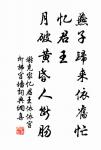 燕子歸來依舊忙
憶君王
月破黃昏人斷腸
謝克家憶君王依依宮
柳拂宮牆詞典網書